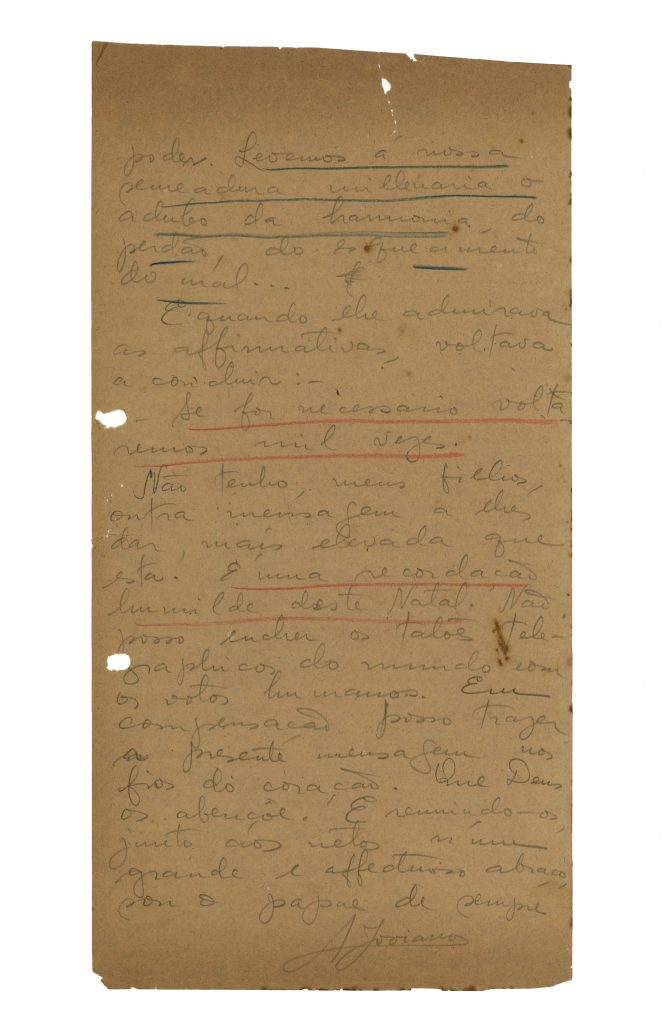 poder. Levemos á nossa
semeadura millenaria o
adubo da harmonia, do
perdão, do esquecimento
do mal...
E quando lhe admirava
as affirmativas, voltava
a concluir:-
- Se for necessario volta-
remos mil vezes.
Não tenho, meus filhos,
outra mensagem a lhes
dar, mais elevada que
esta. É uma recordação
humilde deste Natal. Não
posso encher os talões tele-
graphicos do mundo com
os votos humanos. Em
compensação posso trazer
a presente mensagem nos
fios do coração. Que Deus
os abençôe. E reunindo-os,
junto aos netos n'um
grande e affectuoso abraço,
sou o papae de sempre
A Joviano